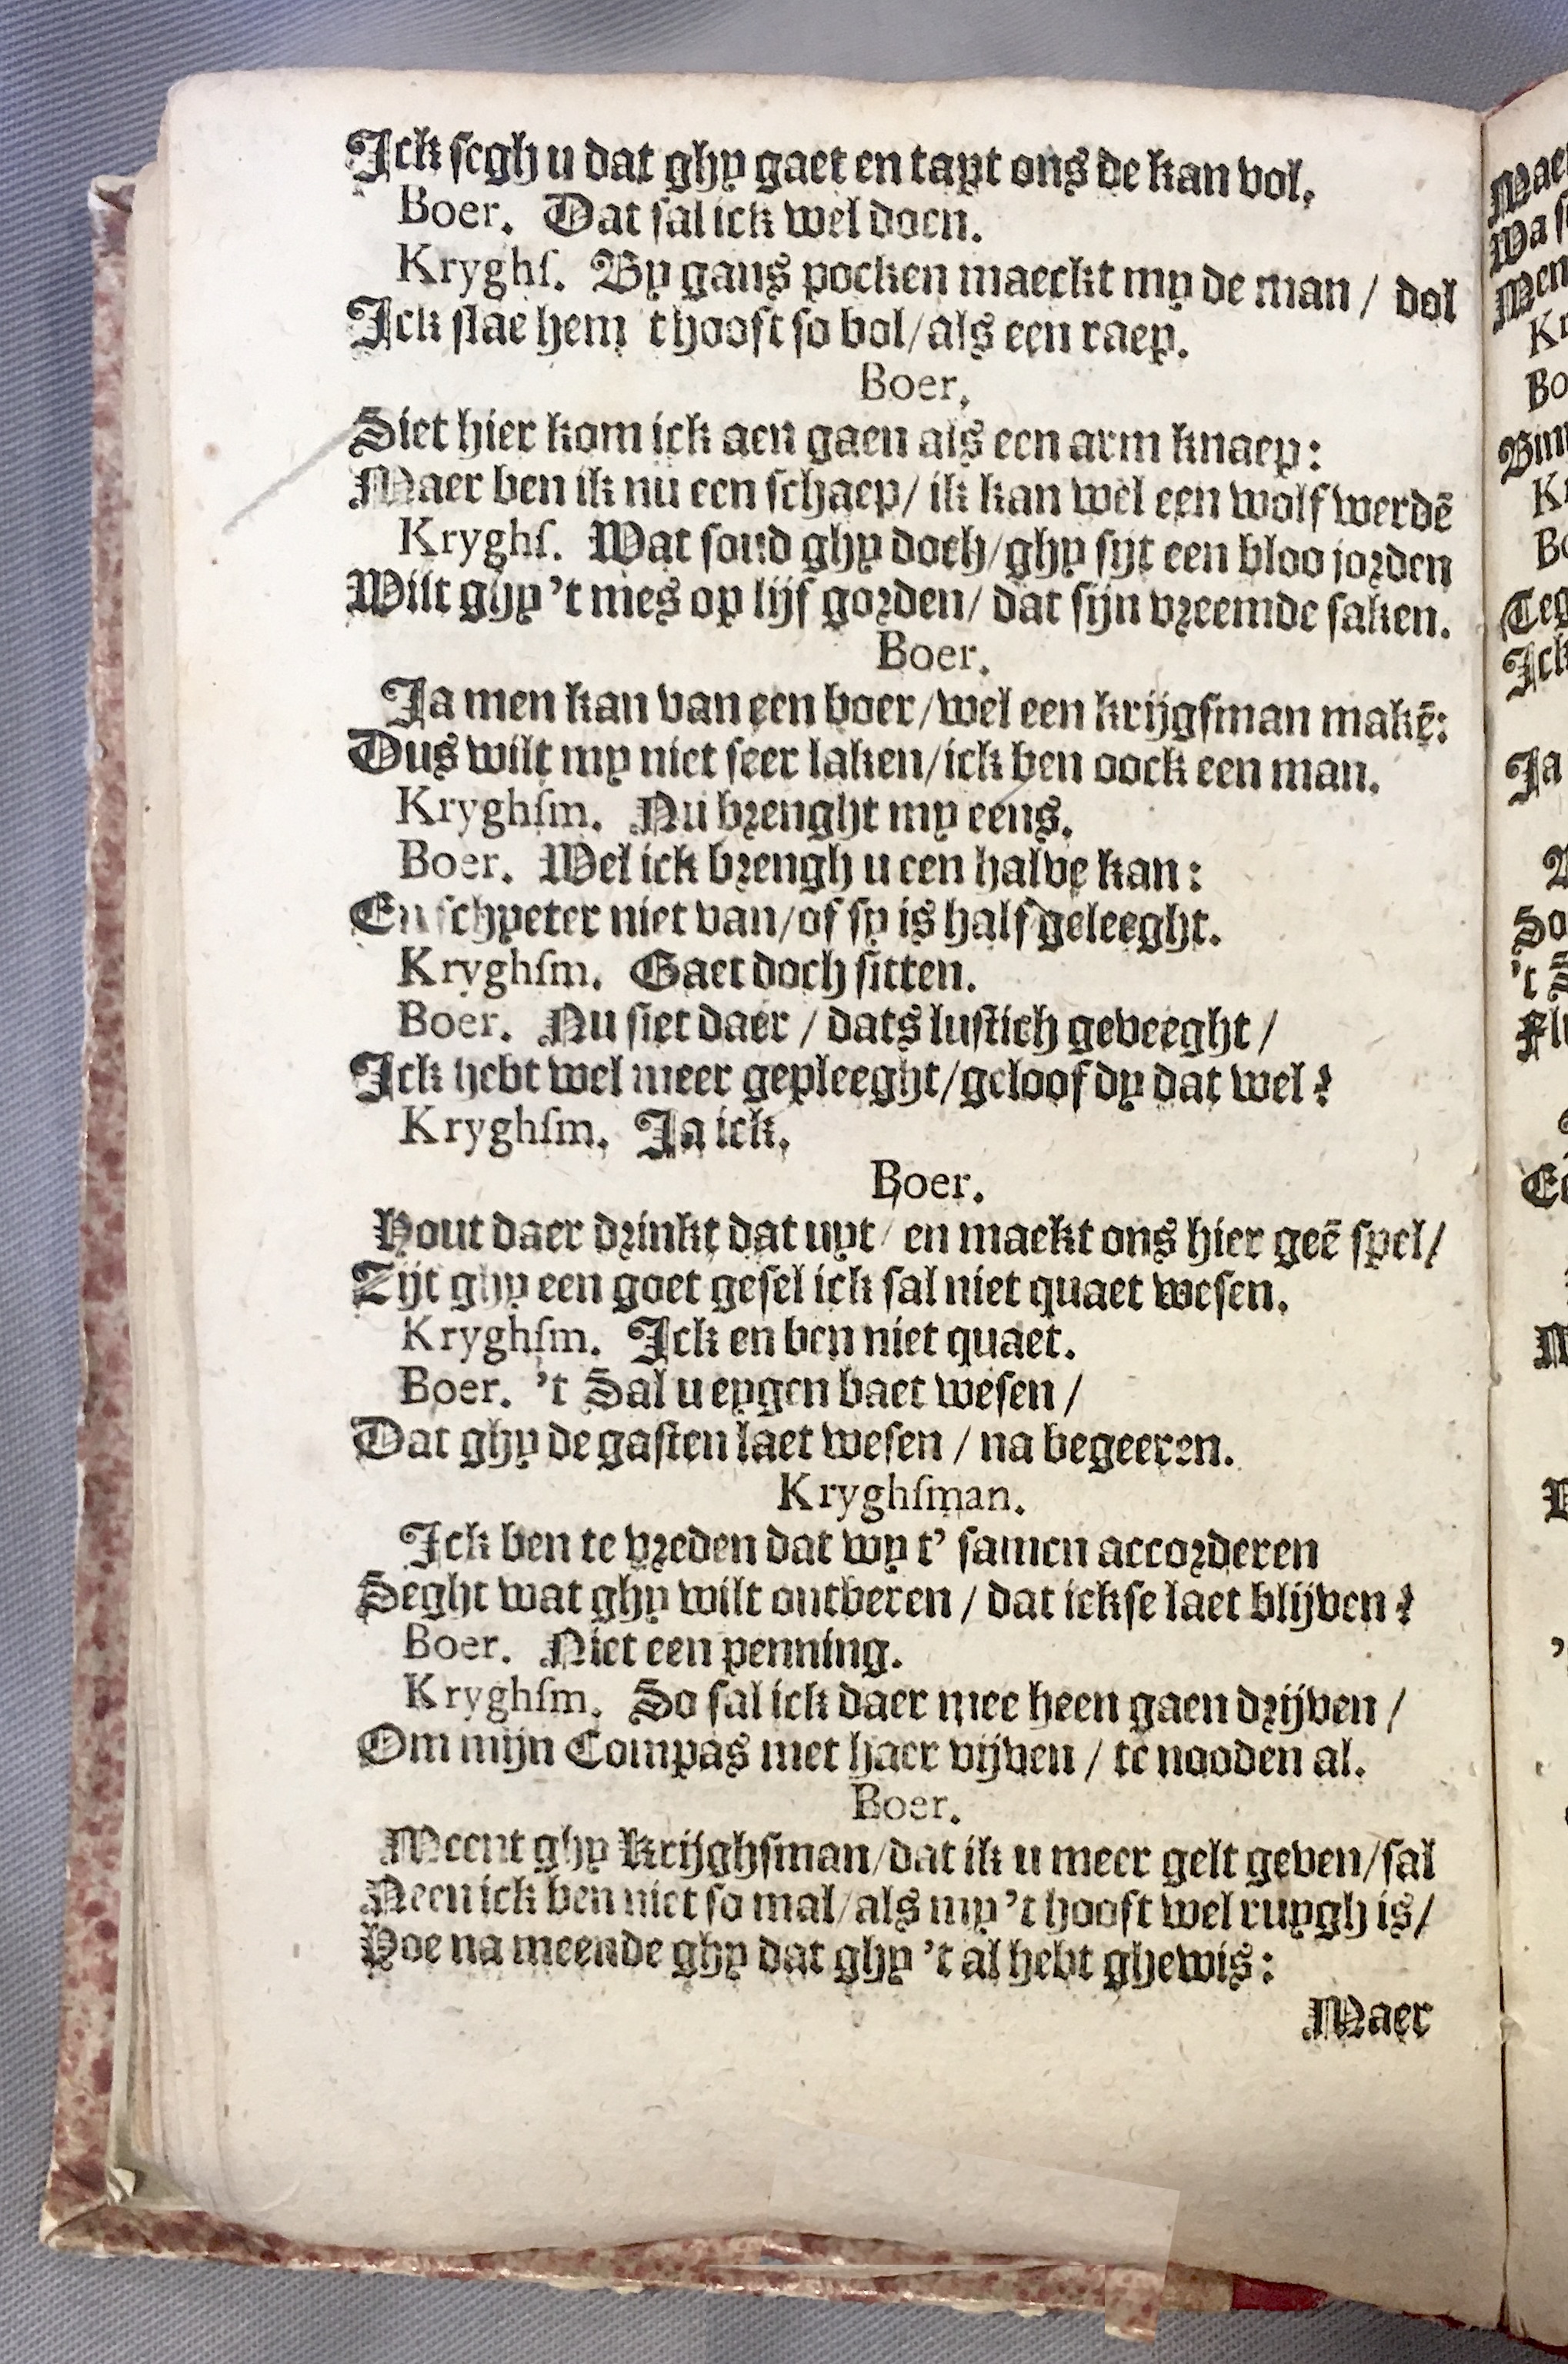 Ick segh u dat ghy gaet en tapt ons de kan vol,
Boer. Dat sal ick wel doen.
Kryghſ. By gans pocken maeckt my de man / dol
Ick slae hem thooft so bol/als een raep.
Boer,
Siet hier kom ick aen gaen als een arm knaep:
Maer ben ik nu een schaep/ ik kan wel een wolf werdē
Kryghſ. Wat soud ghy doch/ghy sijt een bloo jorden
Wilt ghy 't mes op lijf gorden/ dat sijn vreemde saken.
Boer.
Ja men kan van een boer/wel een krijgsman makē:
Dus wilt my niet seer laken/ick ben oock een man.
Kryghſm. Nu brenght my eens.
Boer. Wel ick brengh u een halve kan:
En schyeter niet van/of sy is half geleeght.
Kryghſm. Gaet doch sitten.
Boer. Nu siet daer / dats lustich geveeght /
Ick hebt wel meer gepleeght/geloof dy dat wel?
Kryghſm. Ja ick.
Boer.
Hout daer drinkt dat uyt/ en maekt ons hier geē spel/
Zijt ghy een goet gesel ick sal niet quaet wesen.
Kryghſm. Ick en ben niet quaet.
Boer. 't Sal u eygen baet wesen /
Dat ghy de gasten laet wesen / na begeeren.
Kryghſman.
Ick ben te vreden dat wy t' samen accorderen
Seght wat ghy wilt ontberen / dat ickse laet blijven?
Boer. Niet een penning.
Kryghſm. So sal ick daer mee heen gaen drijven /
Om mijn Compas met haer vijven / te nooden al.
Boer.
Meent ghy Krijghsman/dat ik u meer gelt geven/sal
Neen ick ben niet so mal/als my 't hooft wel ruygh is/
Hoe na meende ghy dat ghy 't al hebt ghewis:
Maer